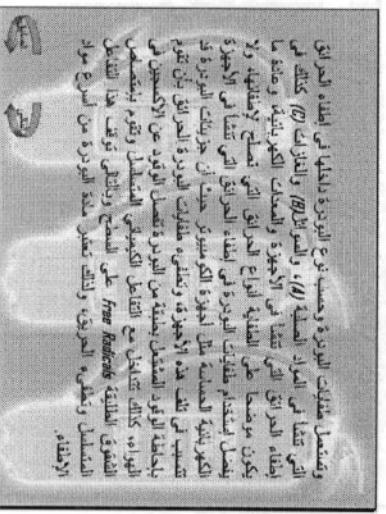 وتستعمل طفايات البودرة وحسب نوع البودرة داخلها فى إطفاء الحرائق
التي تنشأ فى المواد الصلبة (A)، والسوائل (B) والغازات (C) كذلك فى
إطفاء الحرائق التي تنشأ فى الأجهزة والمعدات الكهربائية، وعادة ما
يكون موضحا على الطفاية أنواع الحرائق التي تصلح لإطفائها، ولا
يفضل استخدام طفايات البودرة فى إطفاء الحرائق التي تنشأ فى الأجهزة
الكهربائية الحساسة مثل أجهزة الكومبيوتر حيث أن جزيئات البودرة قد
تتسبب فى تلف هذه الأجهزة، وتطفىء طفايات البودرة الحرائق بأن تقوم
بإحاطة الوقود المشتعل بطبقة من البودرة تفصل الوقود عن الأكسجين فى
الهواء، كذلك تتداخل مع التفاعل الكيميائي المتسلسل وتقوم بامتصاص
الشقوق الطليقة free Radicals على السطح وبالتالى توقف هذا التفاعل
المتسلسل وتطفىء الحريق، ولذلك تعتبر مادة البودرة من أسرع مواد
الإطفاء.